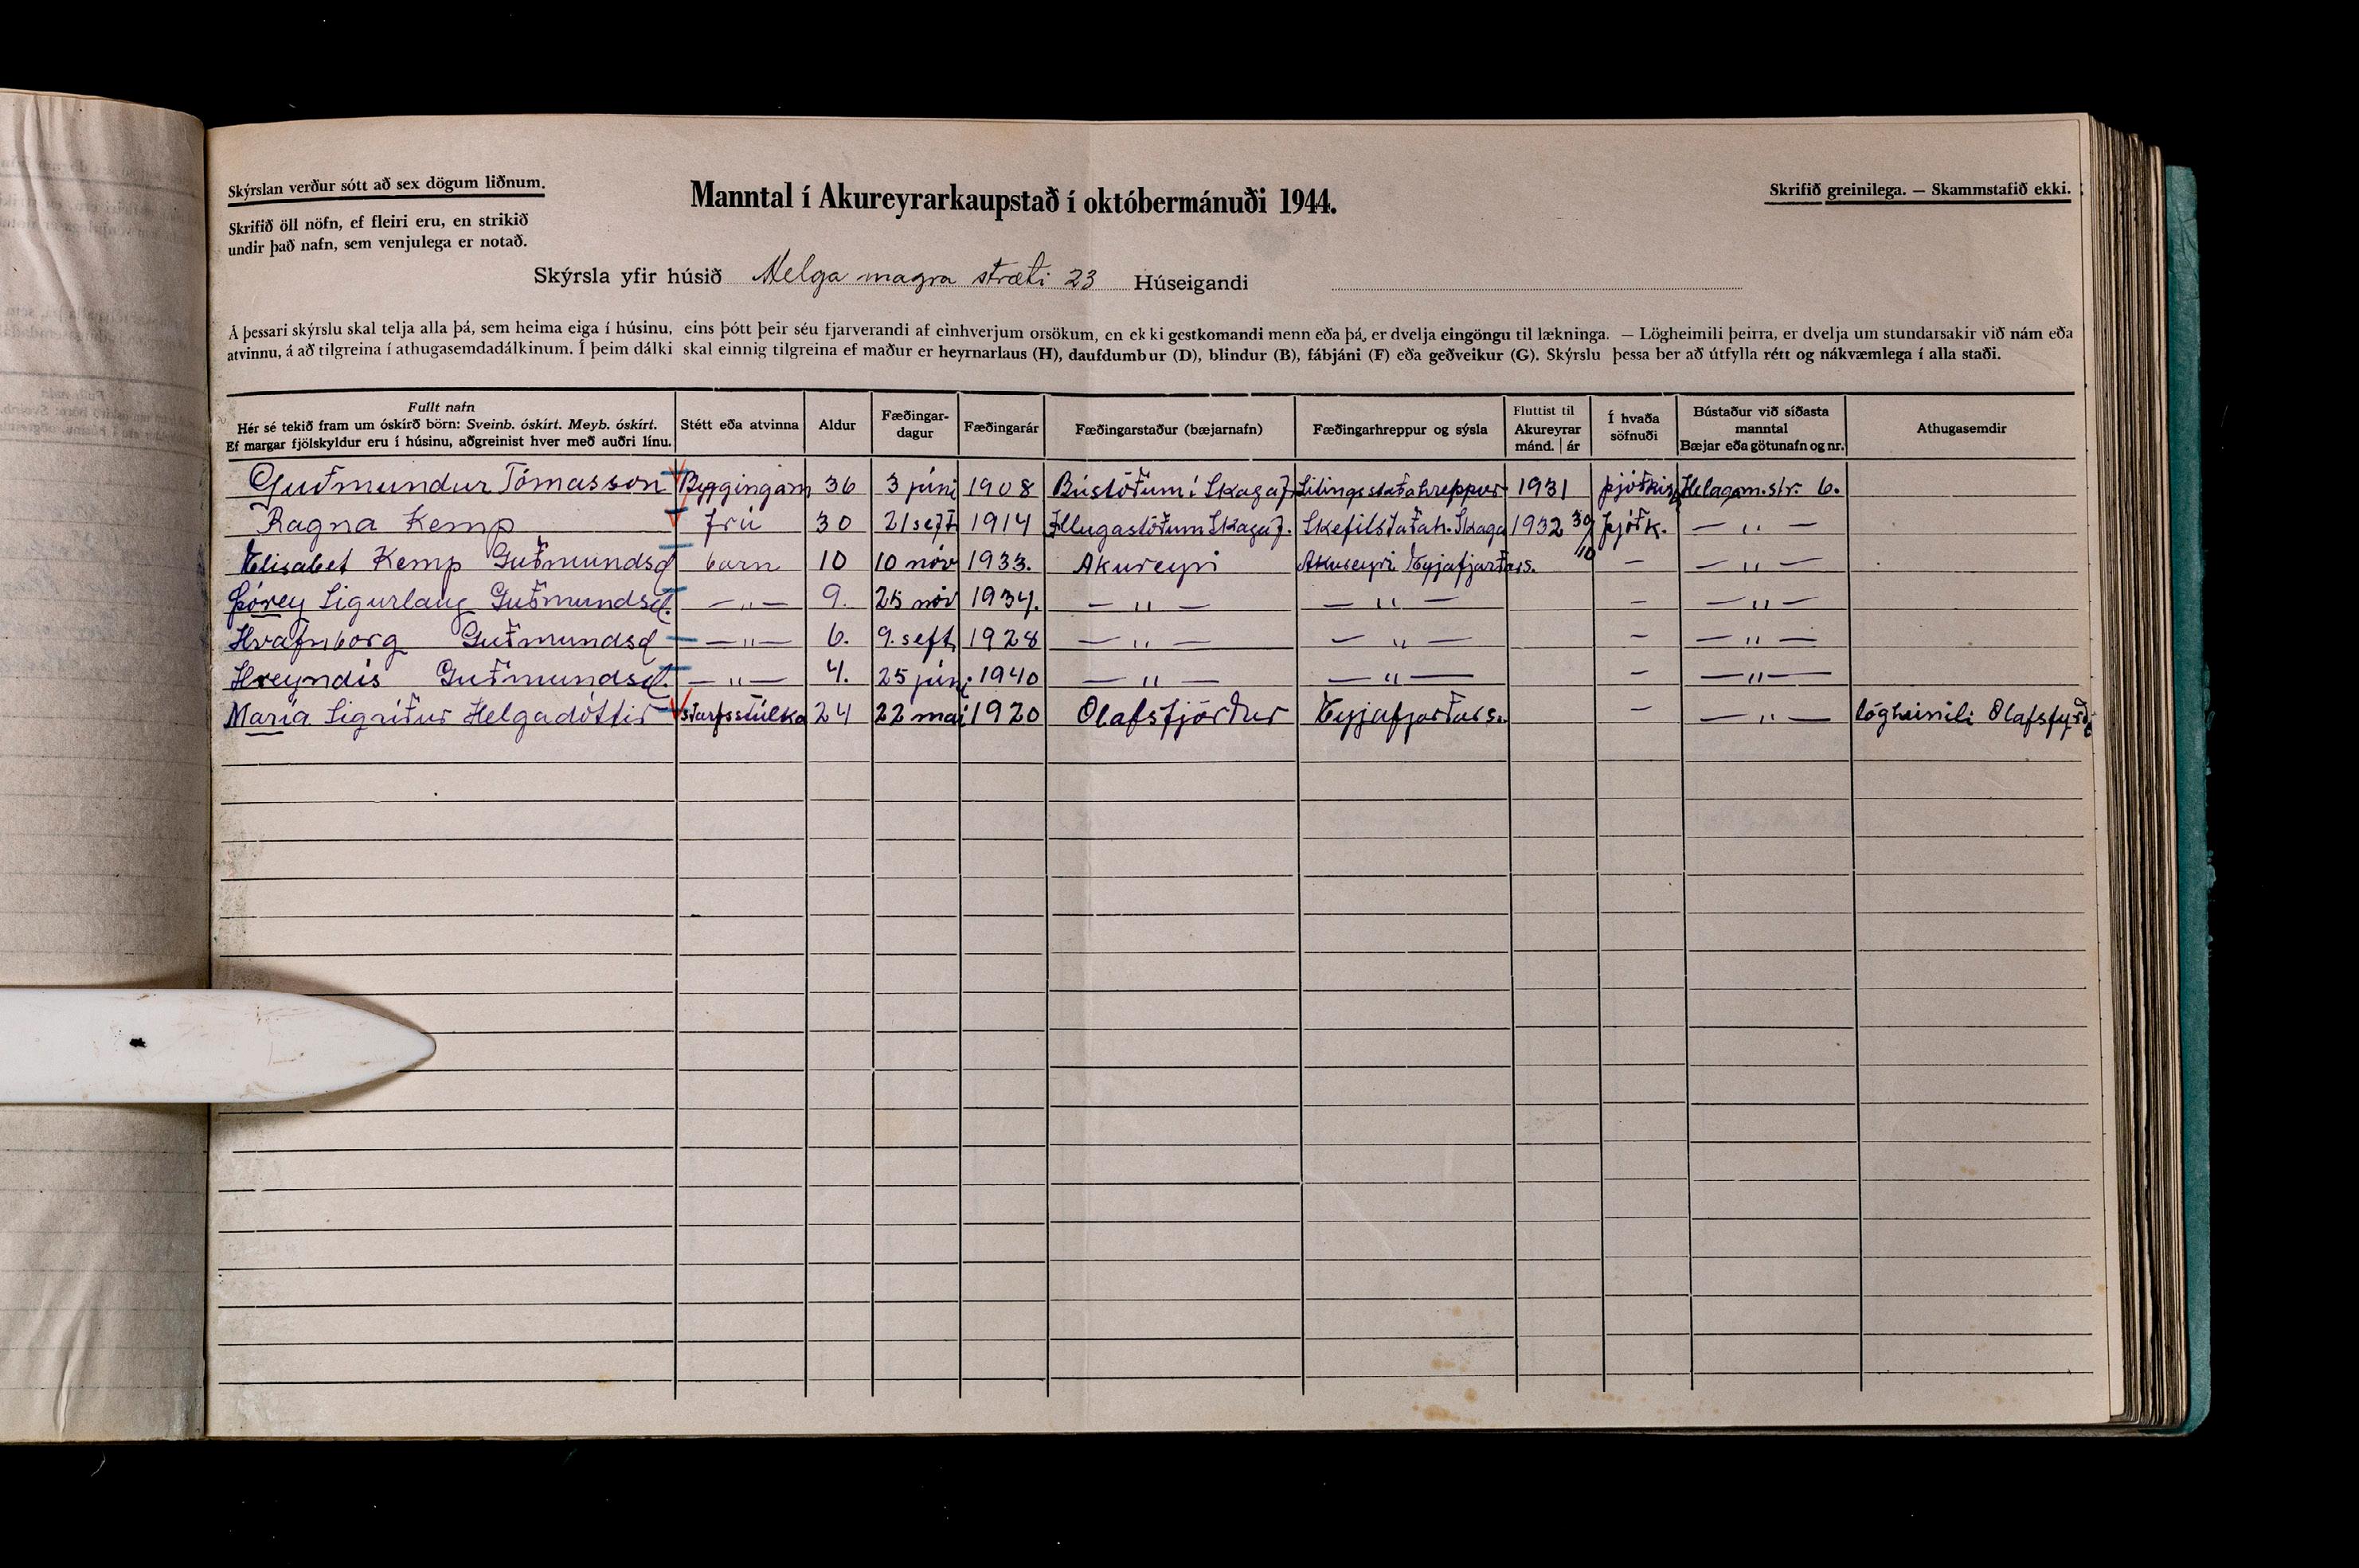 Skýrslan verður sótt að sex dögum liðnum.
Skrifið öll nöfn, ef fleiri eru, en strikið
undir það nafn, sem venjulega er notað.
Manntal í Akureyrarkaupstað í októbermánuði 1944.
Skrifið greinilega. — Skammstafið ekki.
Skýrsla yfir húsið Helga magra stræti 23 Húseigandi
Á þessari skýrslu skal telja alla þá, sem heima eiga í húsinu, eins þótt þeir séu fjarverandi af einhverjum orsökum, en ekki gestkomandi menn eða þá, er dvelja eingöngu til lækninga. — Lögheimili þeirra, er dvelja um stundarsakir við nám eða
atvinnu, á að tilgreina í athugasemdadálkinum. Í þeim dálki skal einnig tilgreina ef maður er heyrnarlaus (H), daufdumbur (D), blindur (B), fábjáni (F) eða geðveikur (G). Skýrslu þessa ber að útfylla rétt og nákvæmlega í alla staði.
Fullt nafn
Hér sé tekið fram um óskírð börn: Sveinb. óskírt. Meyb. óskírt.
Ef margar fjölskyldur eru í húsinu, aðgreinist hver með auðri línu.
Stétt eða atvinna
Aldur
Fæðingar-
dagur
Fæðingarár
Fæðingarstaður (bæjarnafn)
Fæðingarhreppur og sýsla
Fluttist til
Akureyrar
mánd. | ár
Í hvaða
söfnuði
Bústaður við síðasta
manntal
Bæjar eða götunafn og nr.
Athugasemdir
Guðmundur Tómasson Byggingam 36 3 júní 1908 Bústöðum í Skagaf. 1931 þjóðkis Helagam.str. 6.
Ragna Kemp frú 30 21 seft 1914 Illugastöðum Skagaf. Skefilstaðah. Skaga 1932 30/10 þjóðk. — " —
Elisabet Kemp Guðmundsd barn 10 10 nóv 1933. Akureyri Akureyri Eyjafjarðars. — — " —
Þórey Sigurlaug Guðmundsd. — " — 9. 25 nóv 1934. — " — — " — — — " —
Hrafnborg Guðmundsd — " — 6. 9. seft 1928 — " — — " — — — " —
Hreyndís Guðmundsd. — " — 4. 25 júní 1940 — " — — " — — — " —
María Sigríður Helgadóttir starfsstúlka 24 22 maí 1920 Olafsfjörður Eyjafjarðars. — — " — lögheimili Olafsfyrði